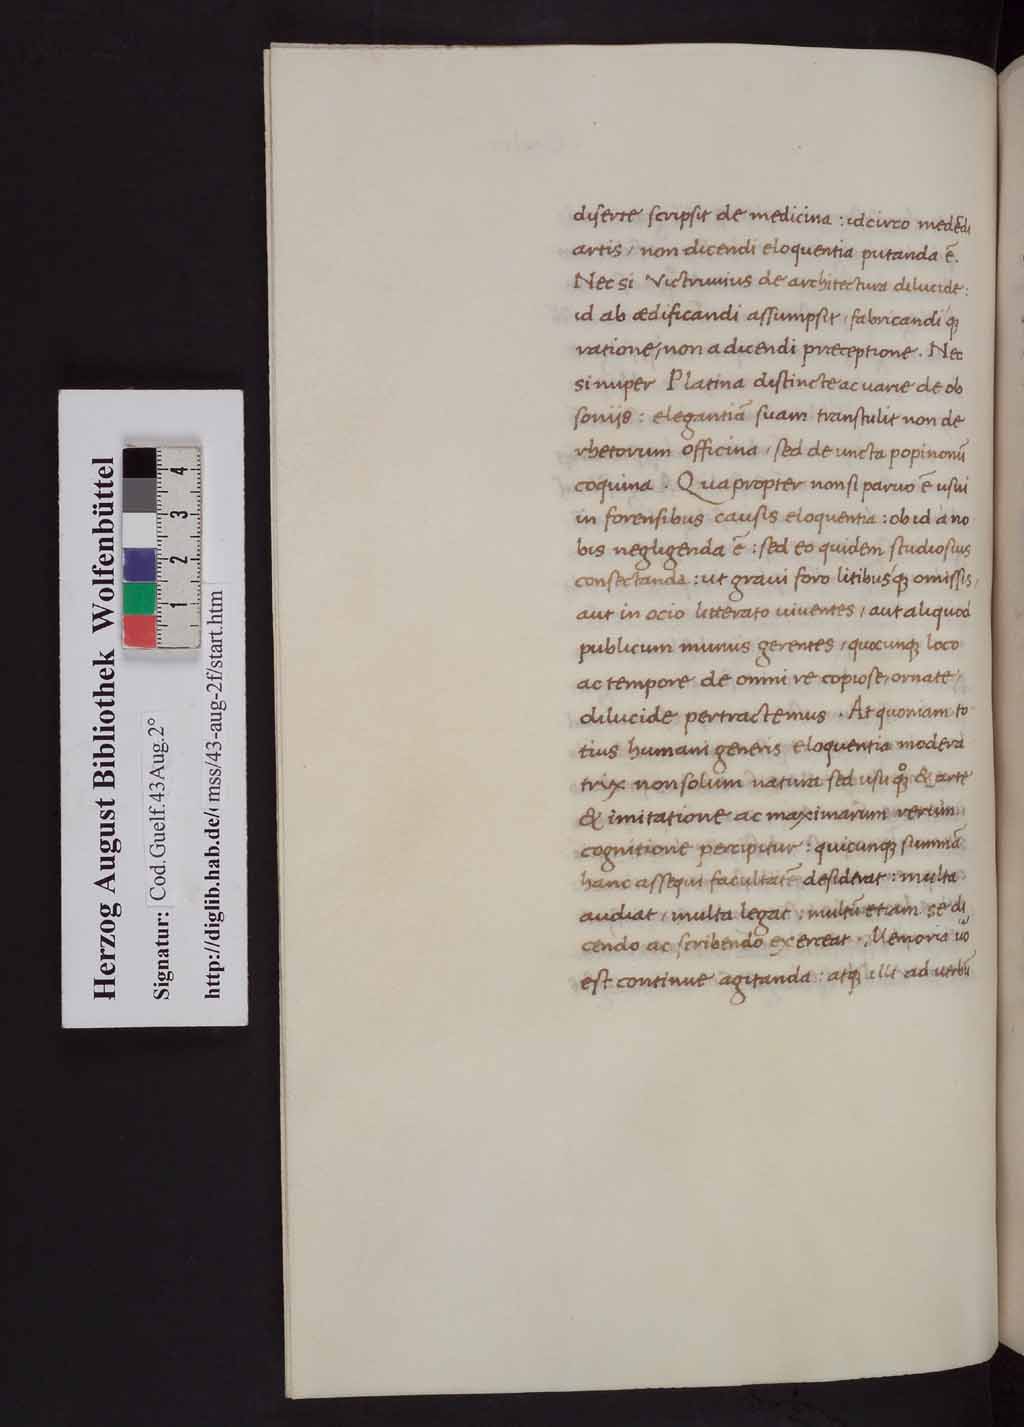 diserte scripsit de medicina : idcirco medēdi
artis / non dicendi eloquentia putanda ē.
Nec si Victruuius de architectura dilucide :
id ab ædificandi assumpsit / fabricandiqꝫ
ratione / non a dicendi præceptione . Nec
si nuper Platina distincte ac uarie de ob
soniis : elegantiā suam transtulit non de
rhetorum officina / sed de uncta popinonū
coquina . Quapropter non si paruo ē usui
in forensibus causis eloquentia : ob id a no
bis negligenda ē : sed eo quidem studiosius
consectanda : ut graui foro litibusqꝫ omissis /
aut in ocio litterato uiuentes / aut aliquod
publicum munus gerentes / quocunqꝫ loco
ac tempore de omni re copiose / ornate /
dilucide pertractemus . At quoniam to
tius humani generis eloquentia modera
trix non solum natura sed usu qꝫ̊ & arte
& imitatione ac maximarum rerum
cognitione percipitur : quicunqꝫ summā
hanc assequi facultatē desiderat : multa
audiat / multa legat : multū etiam se di
cendo ac scribendo exerceat . Memoria uō
est continue agitanda : atqꝫ illi ad uerbū
Herzog August Bibliothek Wolfenbüttel
Signatur: Cod.Guelf.43Aug.2°
http://diglib.hab.de/ mss/43-aug-2f/start.htm
1 2 3 4